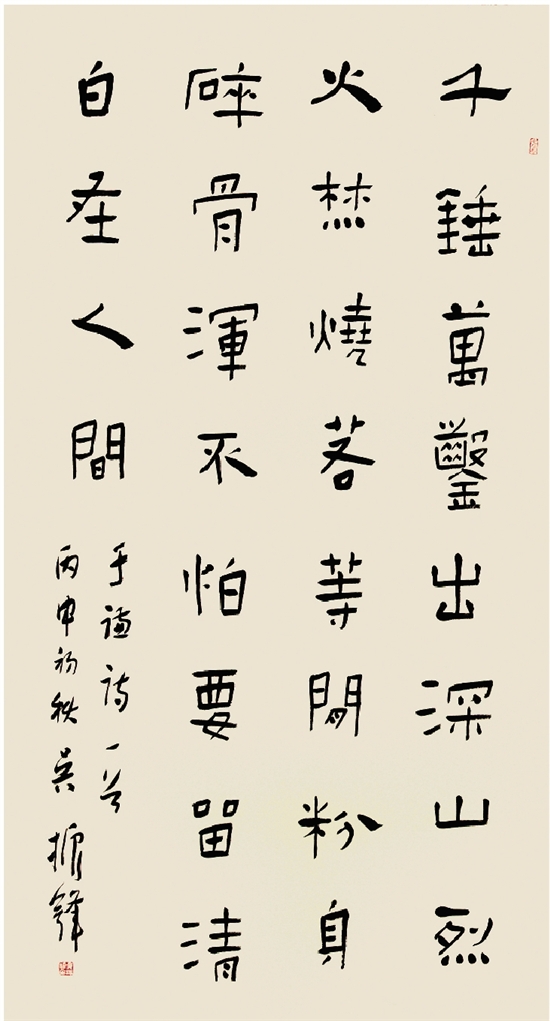 千錘萬鑿出深山烈
火焚燒若等閒粉身
碎骨渾不怕要留清
白在人間
于謙詩一首
丙申初秋吴振鋒